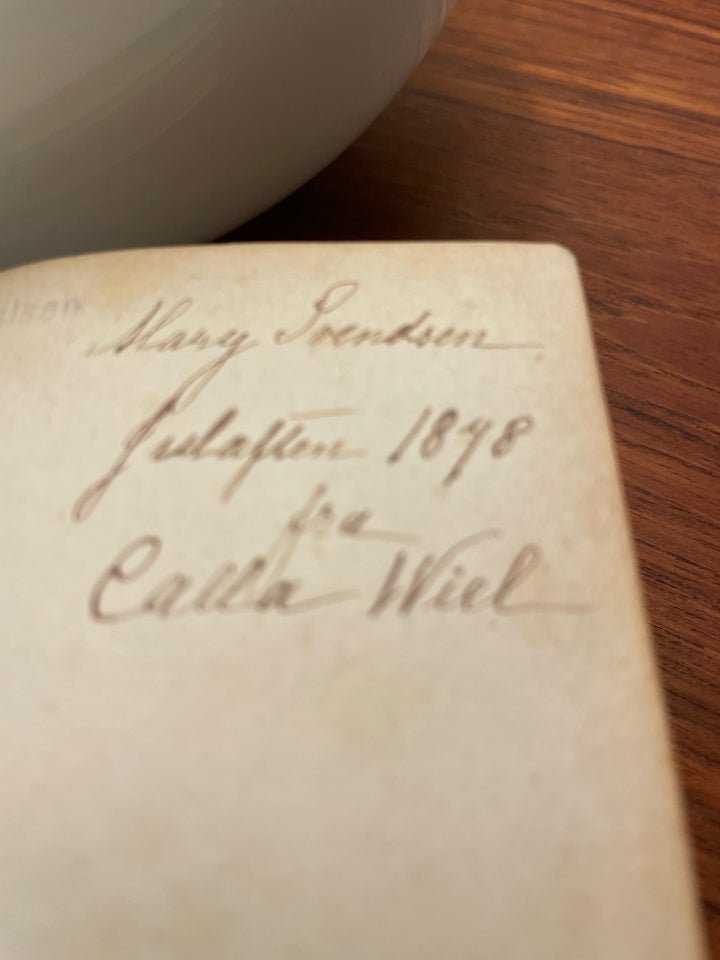 Mary Svendsen
Juleaften 1898
fra
Calla Wiel